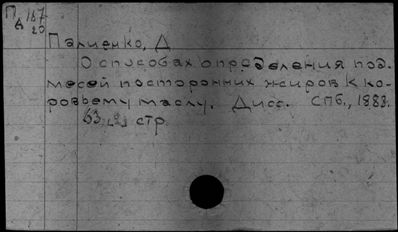 П 167
А 20
Палиенко, Д
О способах определения под-
месей посторонних жиров к ко-
ровьему маслу. Дисс. СПб., 1883.
63 стр.